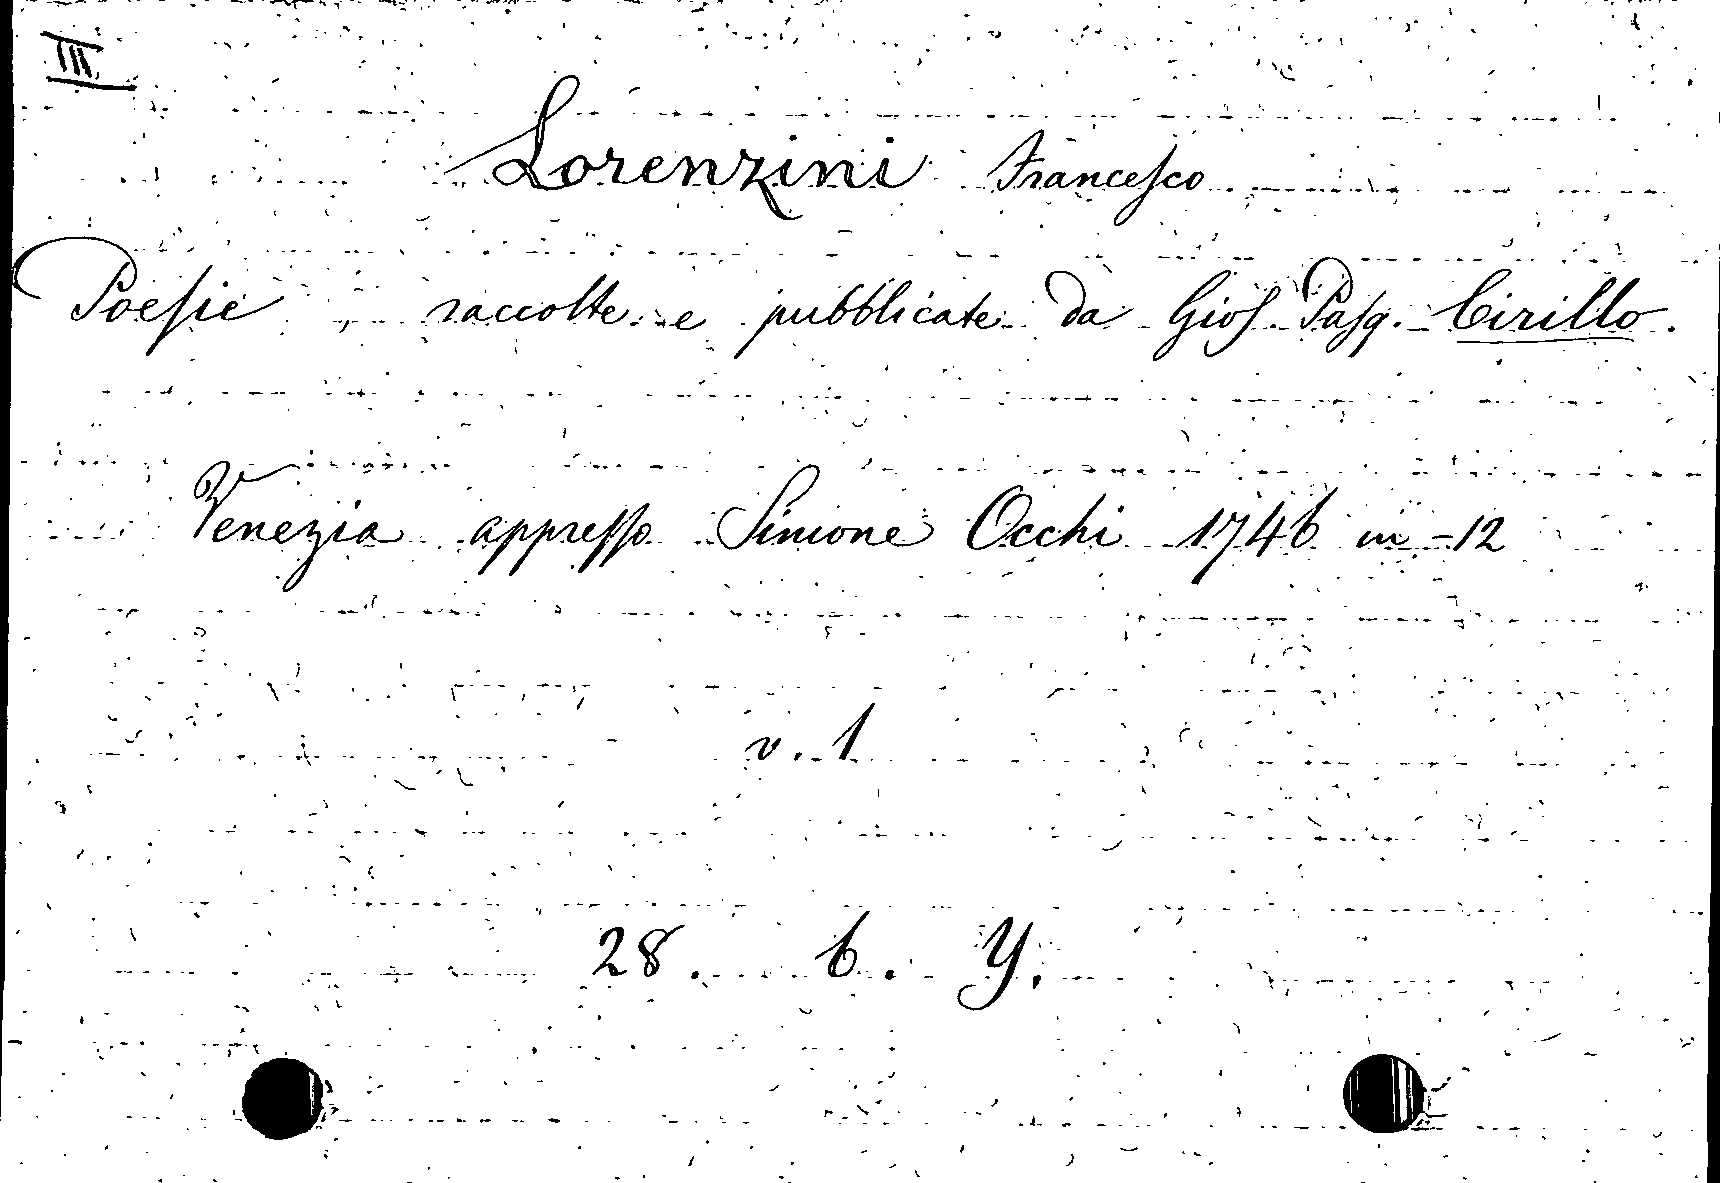 III
Lorenzini Francesco
Poesie raccolte e pubblicate da Gios. Pasq. Cirillo.
Venezia appresso Simone Occhi 1746 in-12
v. 1
28. 6. Y.